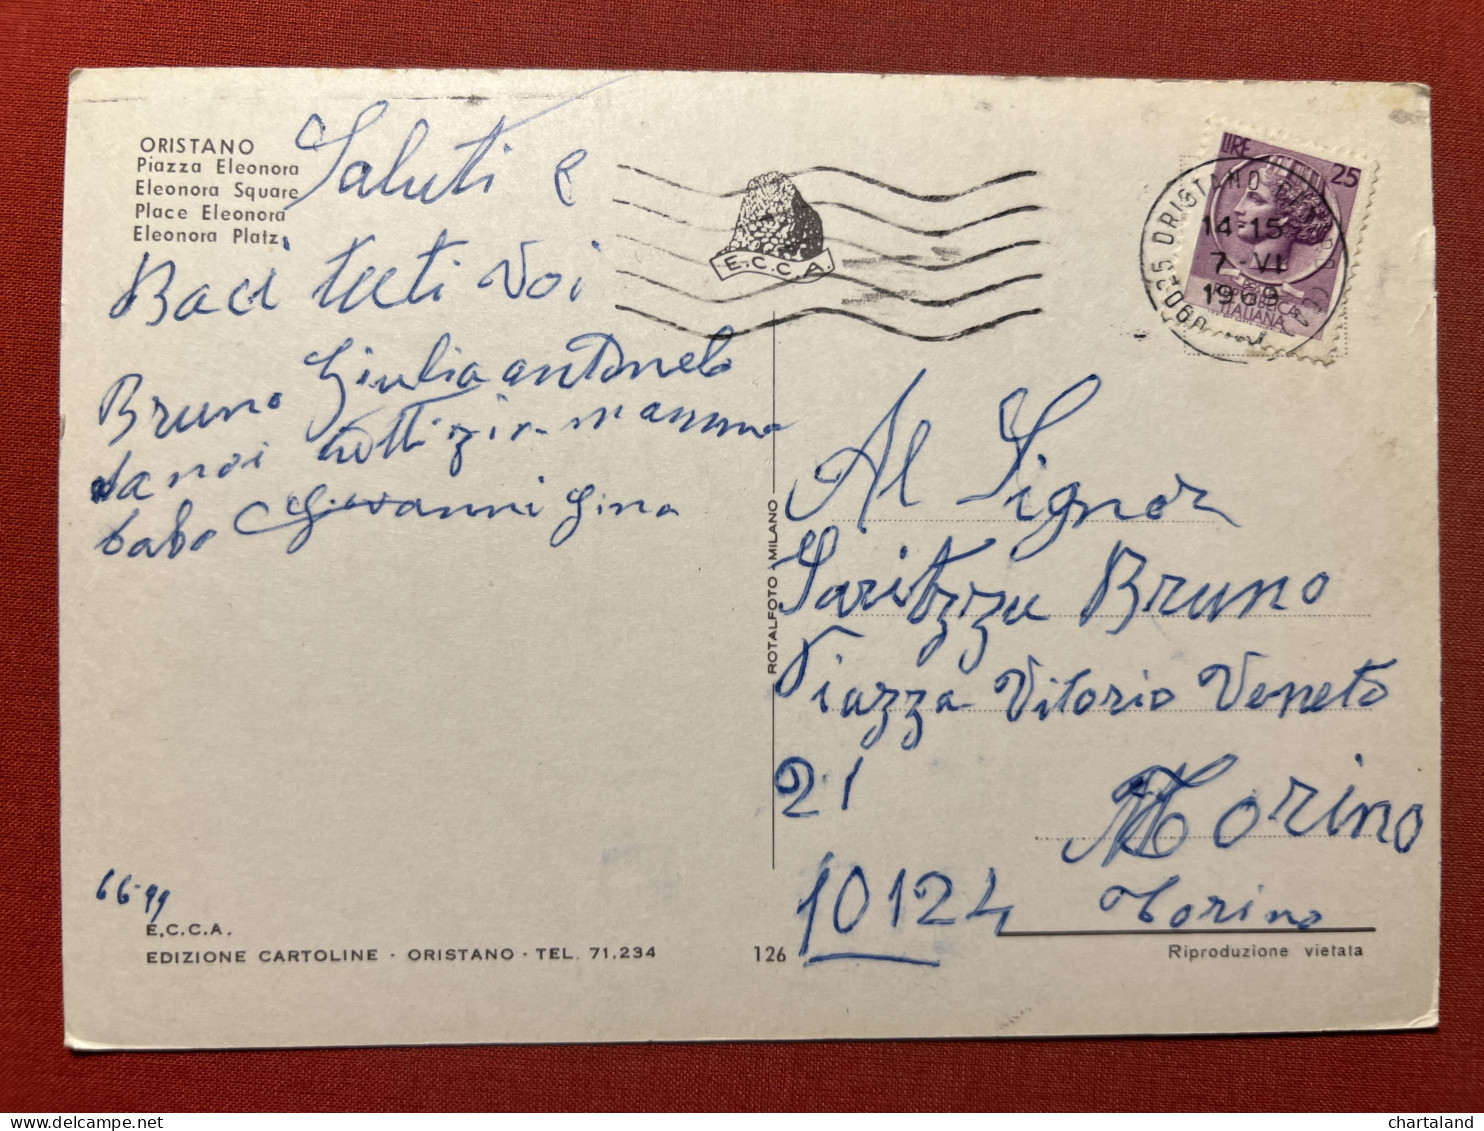 ORISTANO
Piazza Eleonora
Eleonora Square
Place Eleonora
Eleonora Platz
Saluti e
Baci tutti voi
Bruno Giulia antonelo
da noi tutti zia mamma
babo Giovanni Gina
E.C.C.A.
LIRE 25
REPUBBLICA
ITALIANA
09025 ORISTANO
14-15
7-VI
1969
ROTALFOTO - MILANO
Al Signor
Saritzzu Bruno
Piazza Vitorio Veneto
21 Torino
10124 Torino
66-99
E.C.C.A.
EDIZIONE CARTOLINE - ORISTANO - TEL. 71.234
126
Riproduzione vietata
chartaland